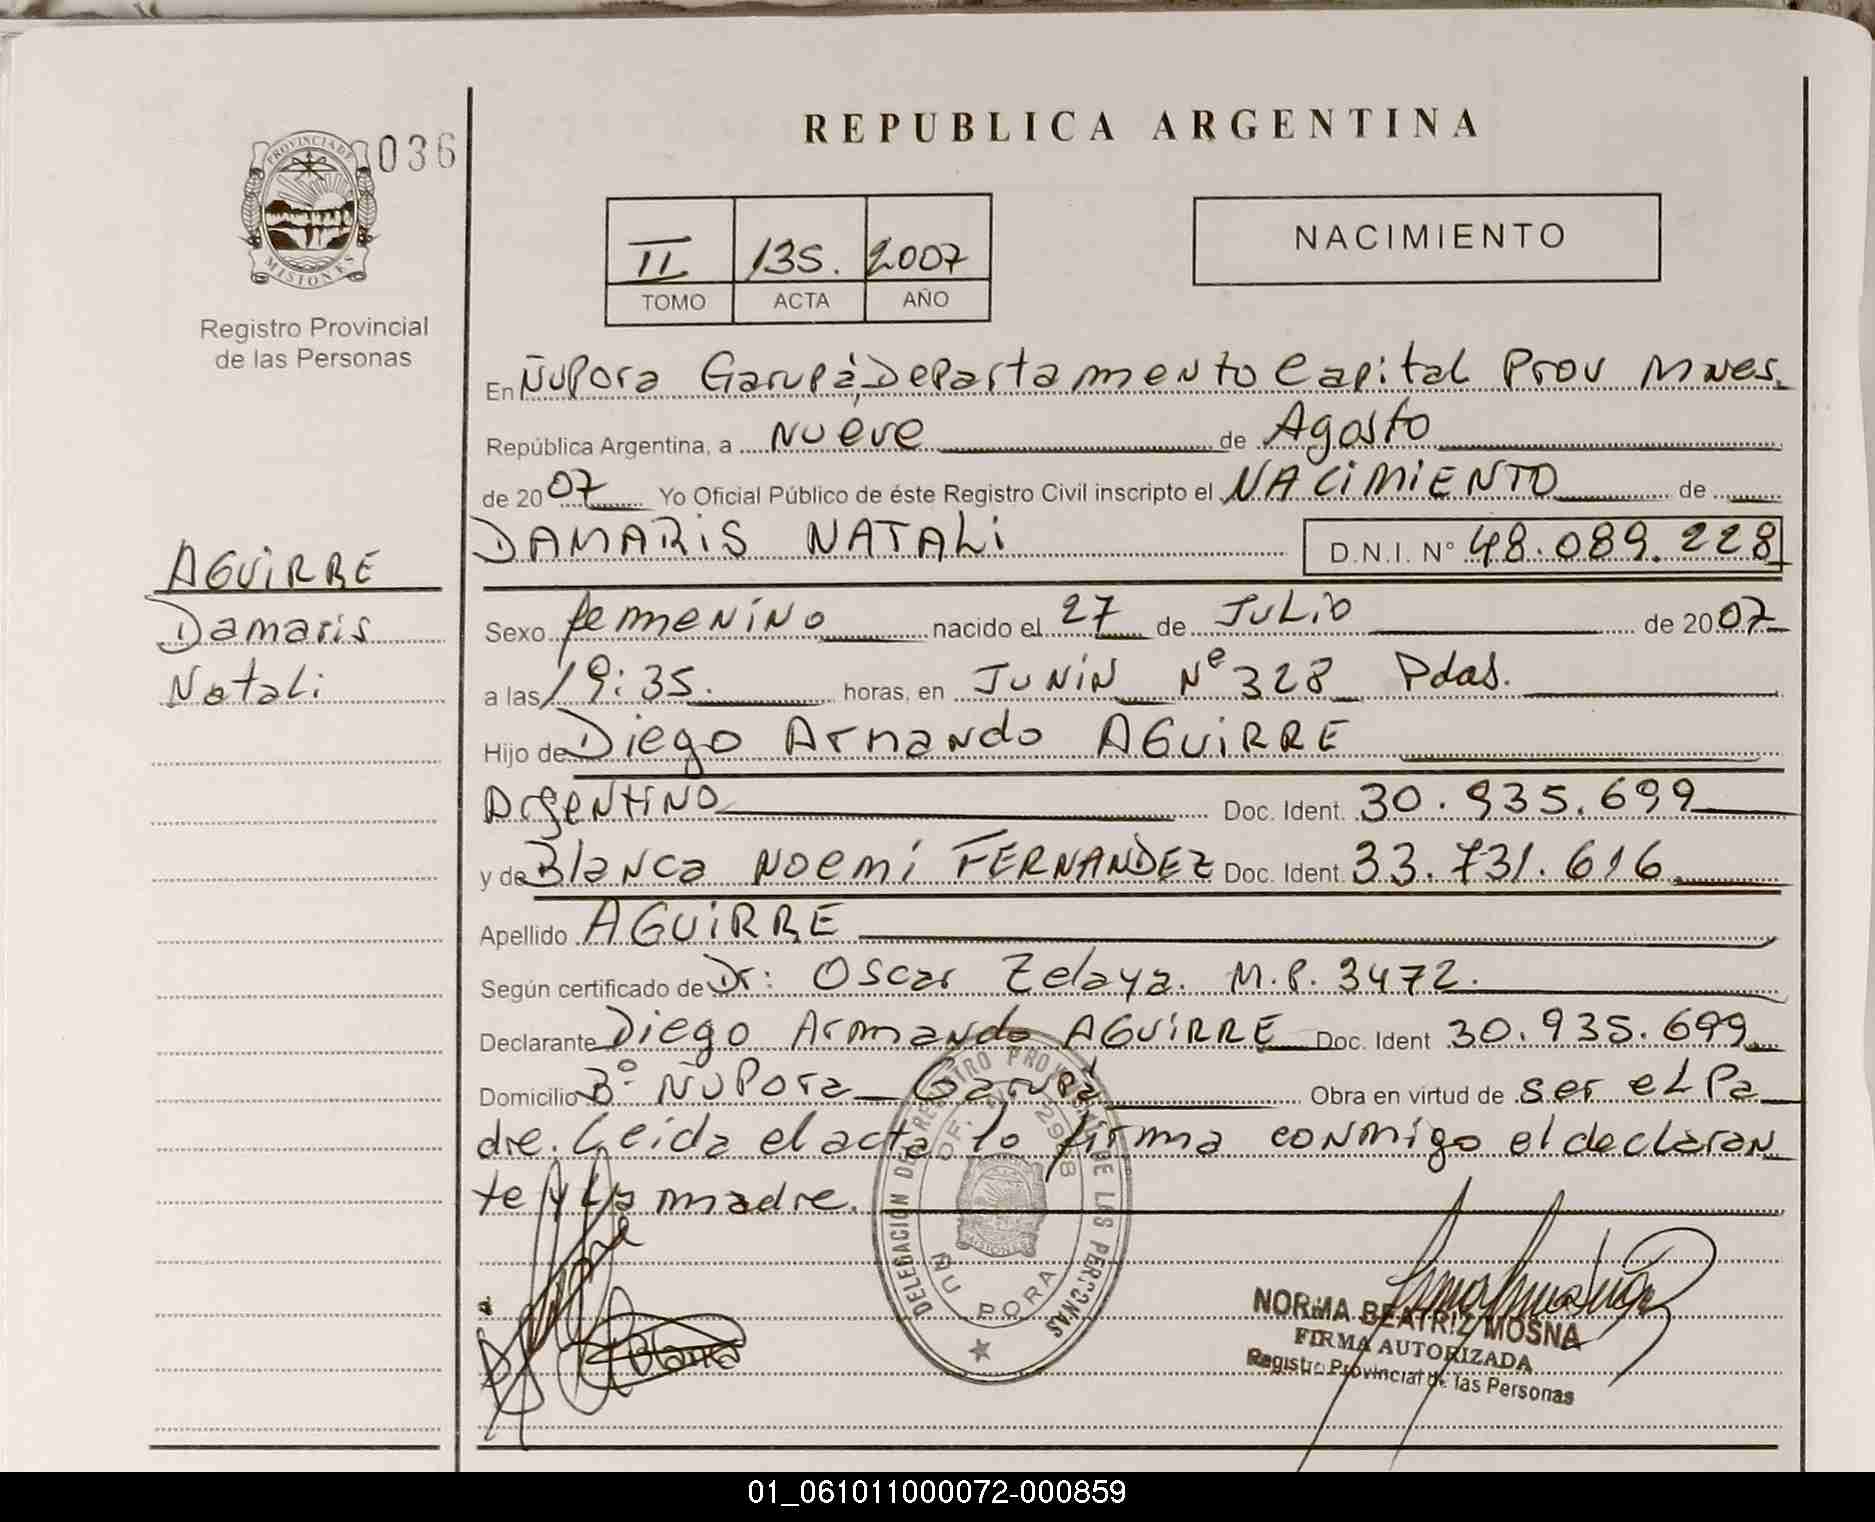 036
PROVINCIA DE
MISIONES
Registro Provincial
de las Personas
REPUBLICA ARGENTINA
II 135. 2007
TOMO ACTA AÑO
NACIMIENTO
En Ñupora Garupá, Departamento Capital Prov Mnes.
República Argentina, a nueve de Agosto
de 2007 Yo Oficial Público de éste Registro Civil inscripto el NACIMIENTO de
DAMARIS NATALI D.N.I. N° 48.089.228
AGUIRRE
Damaris
Natali
Sexo femenino nacido el 27 de JULIO de 2007
a las 19:35. horas, en JUNIN Nº 328 Pdas.
Hijo de Diego Armando AGUIRRE
Argentino Doc. Ident. 30.935.699
y de Blanca Noemí FERNANDEZ Doc. Ident. 33.731.616.
Apellido AGUIRRE
Según certificado de Dr: Oscar Zelaya. M.P. 3472.
Declarante Diego Armando AGUIRRE Doc. Ident 30.935.699
Domicilio Bº Ñupora Garupá Obra en virtud de ser el Pa
dre. Leida el acta lo firma conmigo el declaran
te y la madre.
DELEGACION DEL REGISTRO PROVINCIAL DE LAS PERSONAS
MISIONES
ÑU PORA
Blanca
NORMA BEATRIZ MOSNA
FIRMA AUTORIZADA
Registro Provincial de las Personas
01_061011000072-000859